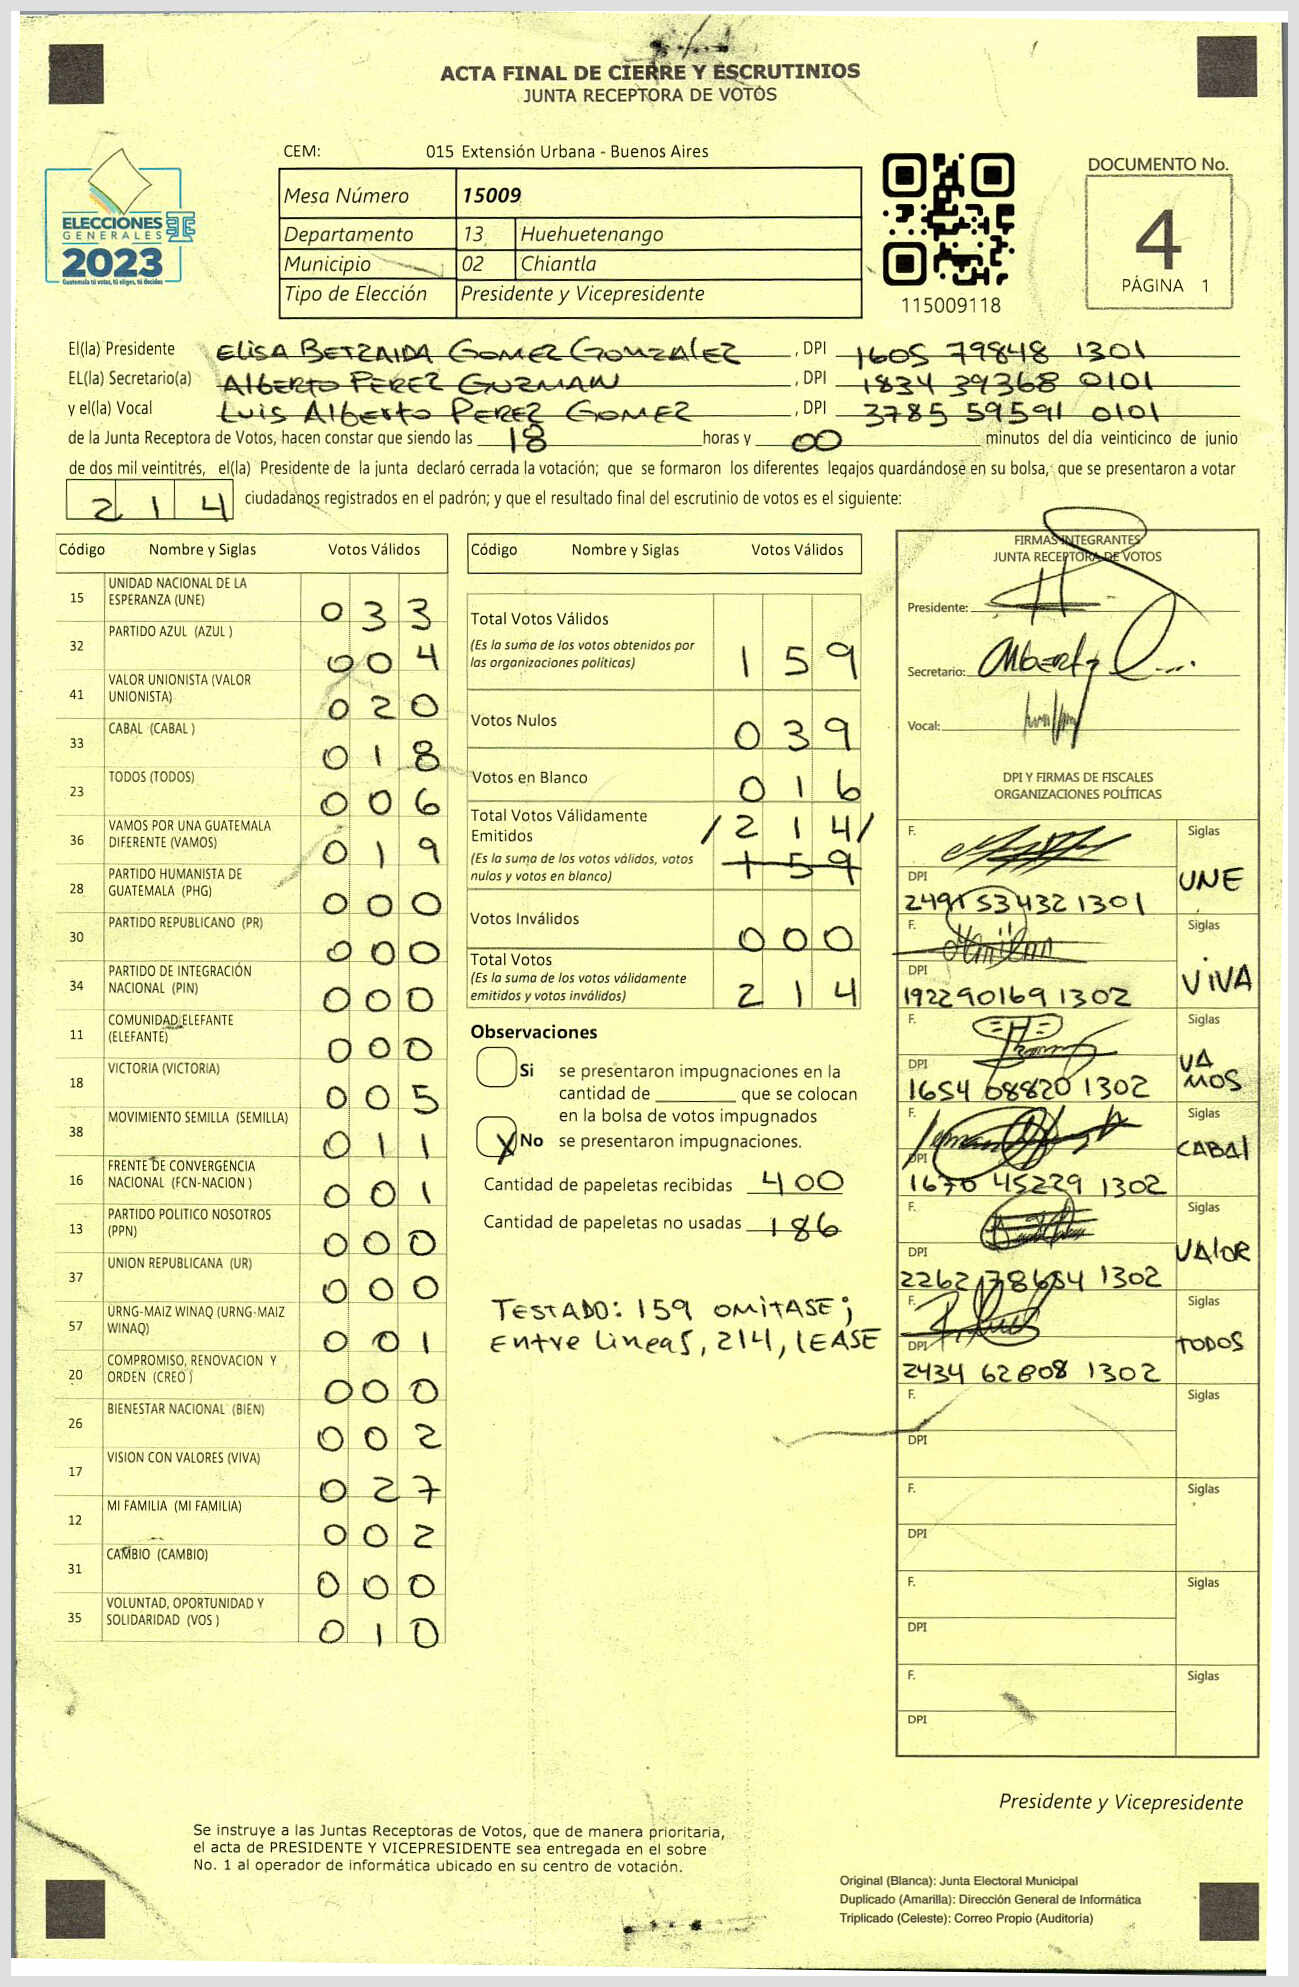 ACTA FINAL DE CIERRE Y ESCRUTINIOS
JUNTA RECEPTORA DE VOTOS
CEM: 015 Extensión Urbana - Buenos Aires
ELECCIONES
GENERALES
2023
Guatemala tú votas, tú eliges, tú decides
Mesa Número 15009
Departamento 13 Huehuetenango
Municipio 02 Chiantla
Tipo de Elección Presidente y Vicepresidente
115009118
DOCUMENTO No.
4
PÁGINA 1
El(la) Presidente Elisa Betzaida Gomez Gonzalez, DPI 1605 79848 1301
EL(la) Secretario(a) Alberto Perez Guzman, DPI 1834 39368 0101
y el(la) Vocal Luis Alberto Perez Gomez, DPI 3785 59591 0101
de la Junta Receptora de Votos, hacen constar que siendo las 18 horas y 00 minutos del día veinticinco de junio
de dos mil veintitrés, el(la) Presidente de la junta declaró cerrada la votación; que se formaron los diferentes legajos guardándose en su bolsa, que se presentaron a votar
214 ciudadanos registrados en el padrón; y que el resultado final del escrutinio de votos es el siguiente:
Código Nombre y Siglas Votos Válidos
15 UNIDAD NACIONAL DE LA ESPERANZA (UNE) 033
32 PARTIDO AZUL (AZUL ) 004
41 VALOR UNIONISTA (VALOR UNIONISTA) 020
33 CABAL (CABAL ) 018
23 TODOS (TODOS) 006
36 VAMOS POR UNA GUATEMALA DIFERENTE (VAMOS) 019
28 PARTIDO HUMANISTA DE GUATEMALA (PHG) 000
30 PARTIDO REPUBLICANO (PR) 000
34 PARTIDO DE INTEGRACIÓN NACIONAL (PIN) 000
11 COMUNIDAD ELEFANTE (ELEFANTE) 000
18 VICTORIA (VICTORIA) 005
38 MOVIMIENTO SEMILLA (SEMILLA) 011
16 FRENTE DE CONVERGENCIA NACIONAL (FCN-NACION ) 001
13 PARTIDO POLITICO NOSOTROS (PPN) 000
37 UNION REPUBLICANA (UR) 000
57 URNG-MAIZ WINAQ (URNG-MAIZ WINAQ) 001
20 COMPROMISO, RENOVACION Y ORDEN (CREO ) 000
26 BIENESTAR NACIONAL (BIEN) 002
17 VISION CON VALORES (VIVA) 027
12 MI FAMILIA (MI FAMILIA) 002
31 CAMBIO (CAMBIO) 000
35 VOLUNTAD, OPORTUNIDAD Y SOLIDARIDAD (VOS ) 010
Código Nombre y Siglas Votos Válidos
Total Votos Válidos 159
(Es la suma de los votos obtenidos por
las organizaciones políticas)
Votos Nulos 039
Votos en Blanco 016
Total Votos Válidamente Emitidos /214/
(Es la suma de los votos válidos, votos 159
nulos y votos en blanco)
Votos Inválidos 000
Total Votos 214
(Es la suma de los votos válidamente
emitidos y votos inválidos)
Observaciones
Si se presentaron impugnaciones en la
cantidad de ________ que se colocan
en la bolsa de votos impugnados
X No se presentaron impugnaciones.
Cantidad de papeletas recibidas 400
Cantidad de papeletas no usadas 186
Testado: 159 omitase;
Entre lineas, 214, lease
FIRMAS INTEGRANTES
JUNTA RECEPTORA DE VOTOS
Presidente:
Secretario:
Vocal:
DPI Y FIRMAS DE FISCALES
ORGANIZACIONES POLÍTICAS
F. Siglas UNE
DPI 2491 53432 1301
F. Siglas VIVA
DPI 1922 90169 1302
F. Siglas VAMOS
DPI 1654 08820 1302
F. Siglas CABAL
DPI 1670 45229 1302
F. Siglas VALOR
DPI 2262 78654 1302
F. Siglas TODOS
DPI 2434 62808 1302
F. Siglas
DPI
F. Siglas
DPI
F. Siglas
DPI
F. Siglas
DPI
Presidente y Vicepresidente
Se instruye a las Juntas Receptoras de Votos, que de manera prioritaria,
el acta de PRESIDENTE Y VICEPRESIDENTE sea entregada en el sobre
No. 1 al operador de informática ubicado en su centro de votación.
Original (Blanca): Junta Electoral Municipal
Duplicado (Amarilla): Dirección General de Informática
Triplicado (Celeste): Correo Propio (Auditoría)